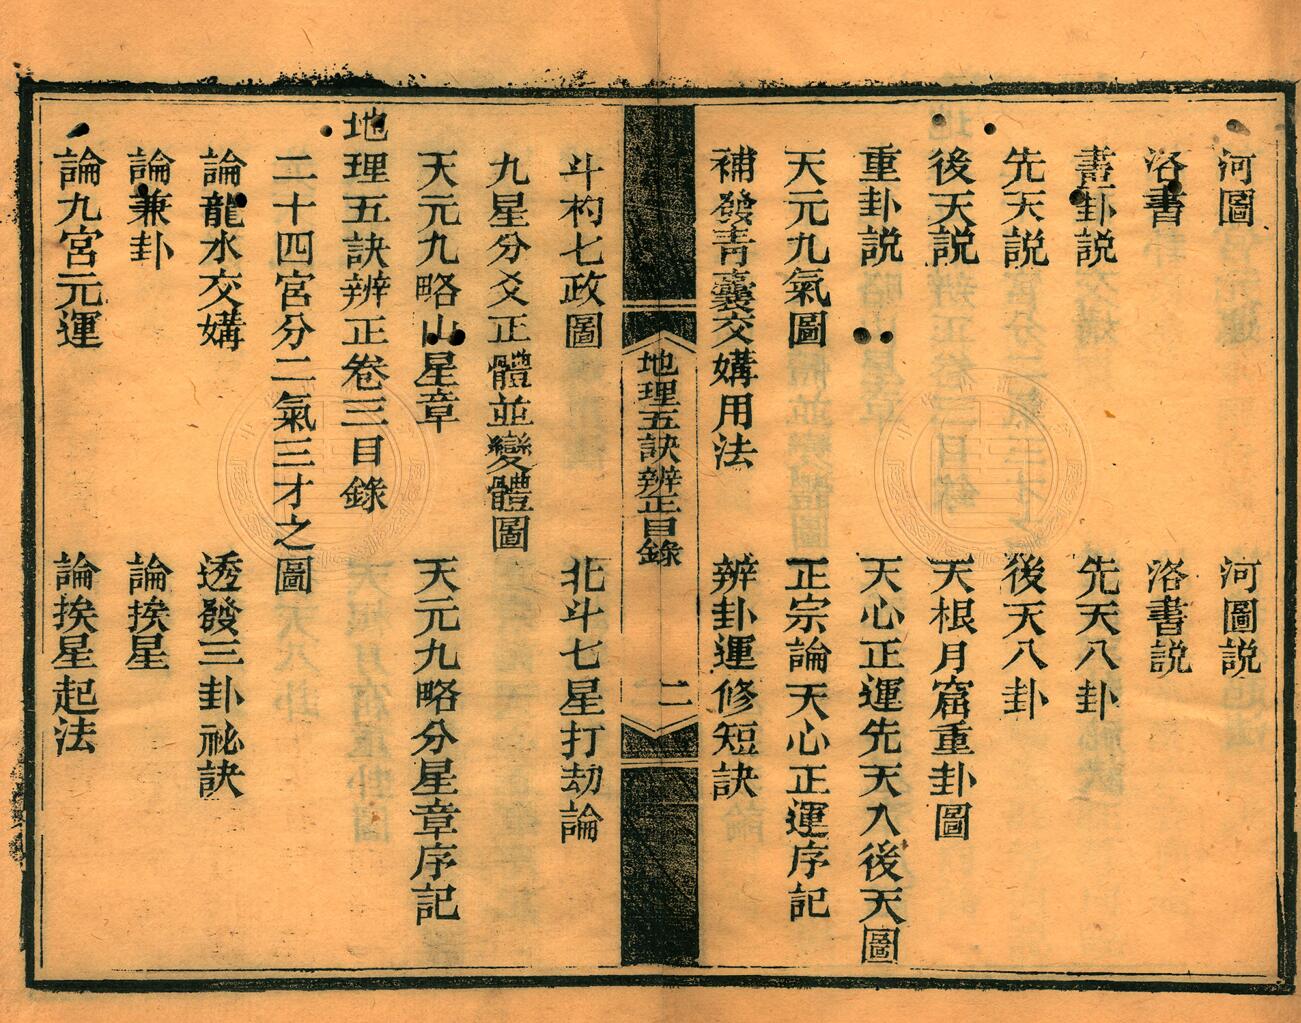 河圖　河圖説
洛書　洛書説
畫卦説　先天八卦
先天説　後天八卦
後天説　天根月窟重卦圖
重卦説　天心正運先天入後天圖
天元九氣圖　正宗論天心正運序記
補發青囊交媾用法　辨卦運修短訣
地理五訣辨正目錄　二
斗杓七政圖　北斗七星打劫論
九星分爻正體並變體圖
天元九略山星章　天元九略分星章序記
地理五訣辨正卷三目錄
二十四宮分二氣三才之圖
論龍水交媾　透發三卦祕訣
論兼卦　論挨星
論九宮元運　論挨星起法